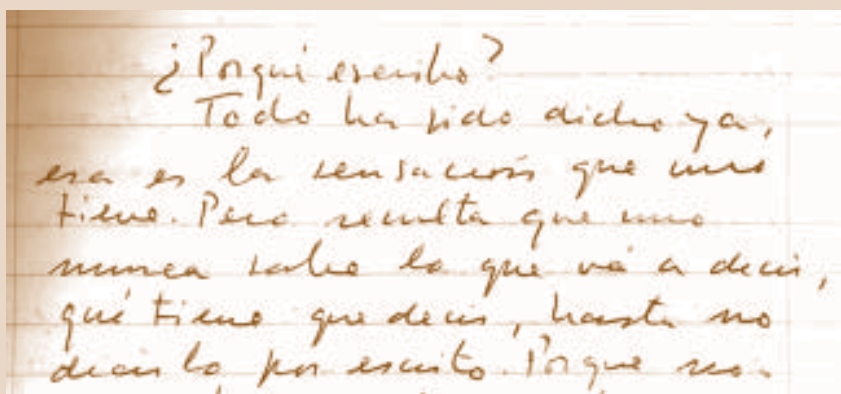 ¿Porqué escribo?
Todo ha sido dicho ya,
esa es la sensación que uno
tiene. Pero resulta que uno
nunca sabe lo que vá a decir,
qué tiene que decir, hasta no
decirlo por escrito. Porque